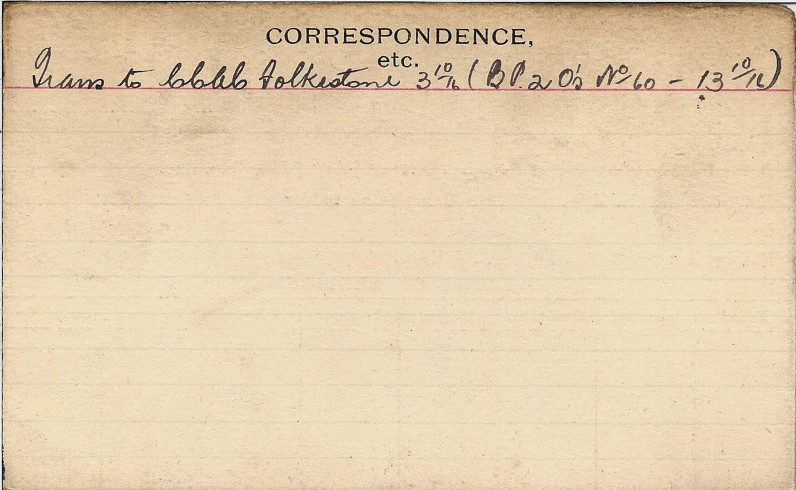 CORRESPONDENCE,
etc.
Trans to CCAC Folkestone 3 10/16 (BP. 2 O's No 60 - 13 10/16)